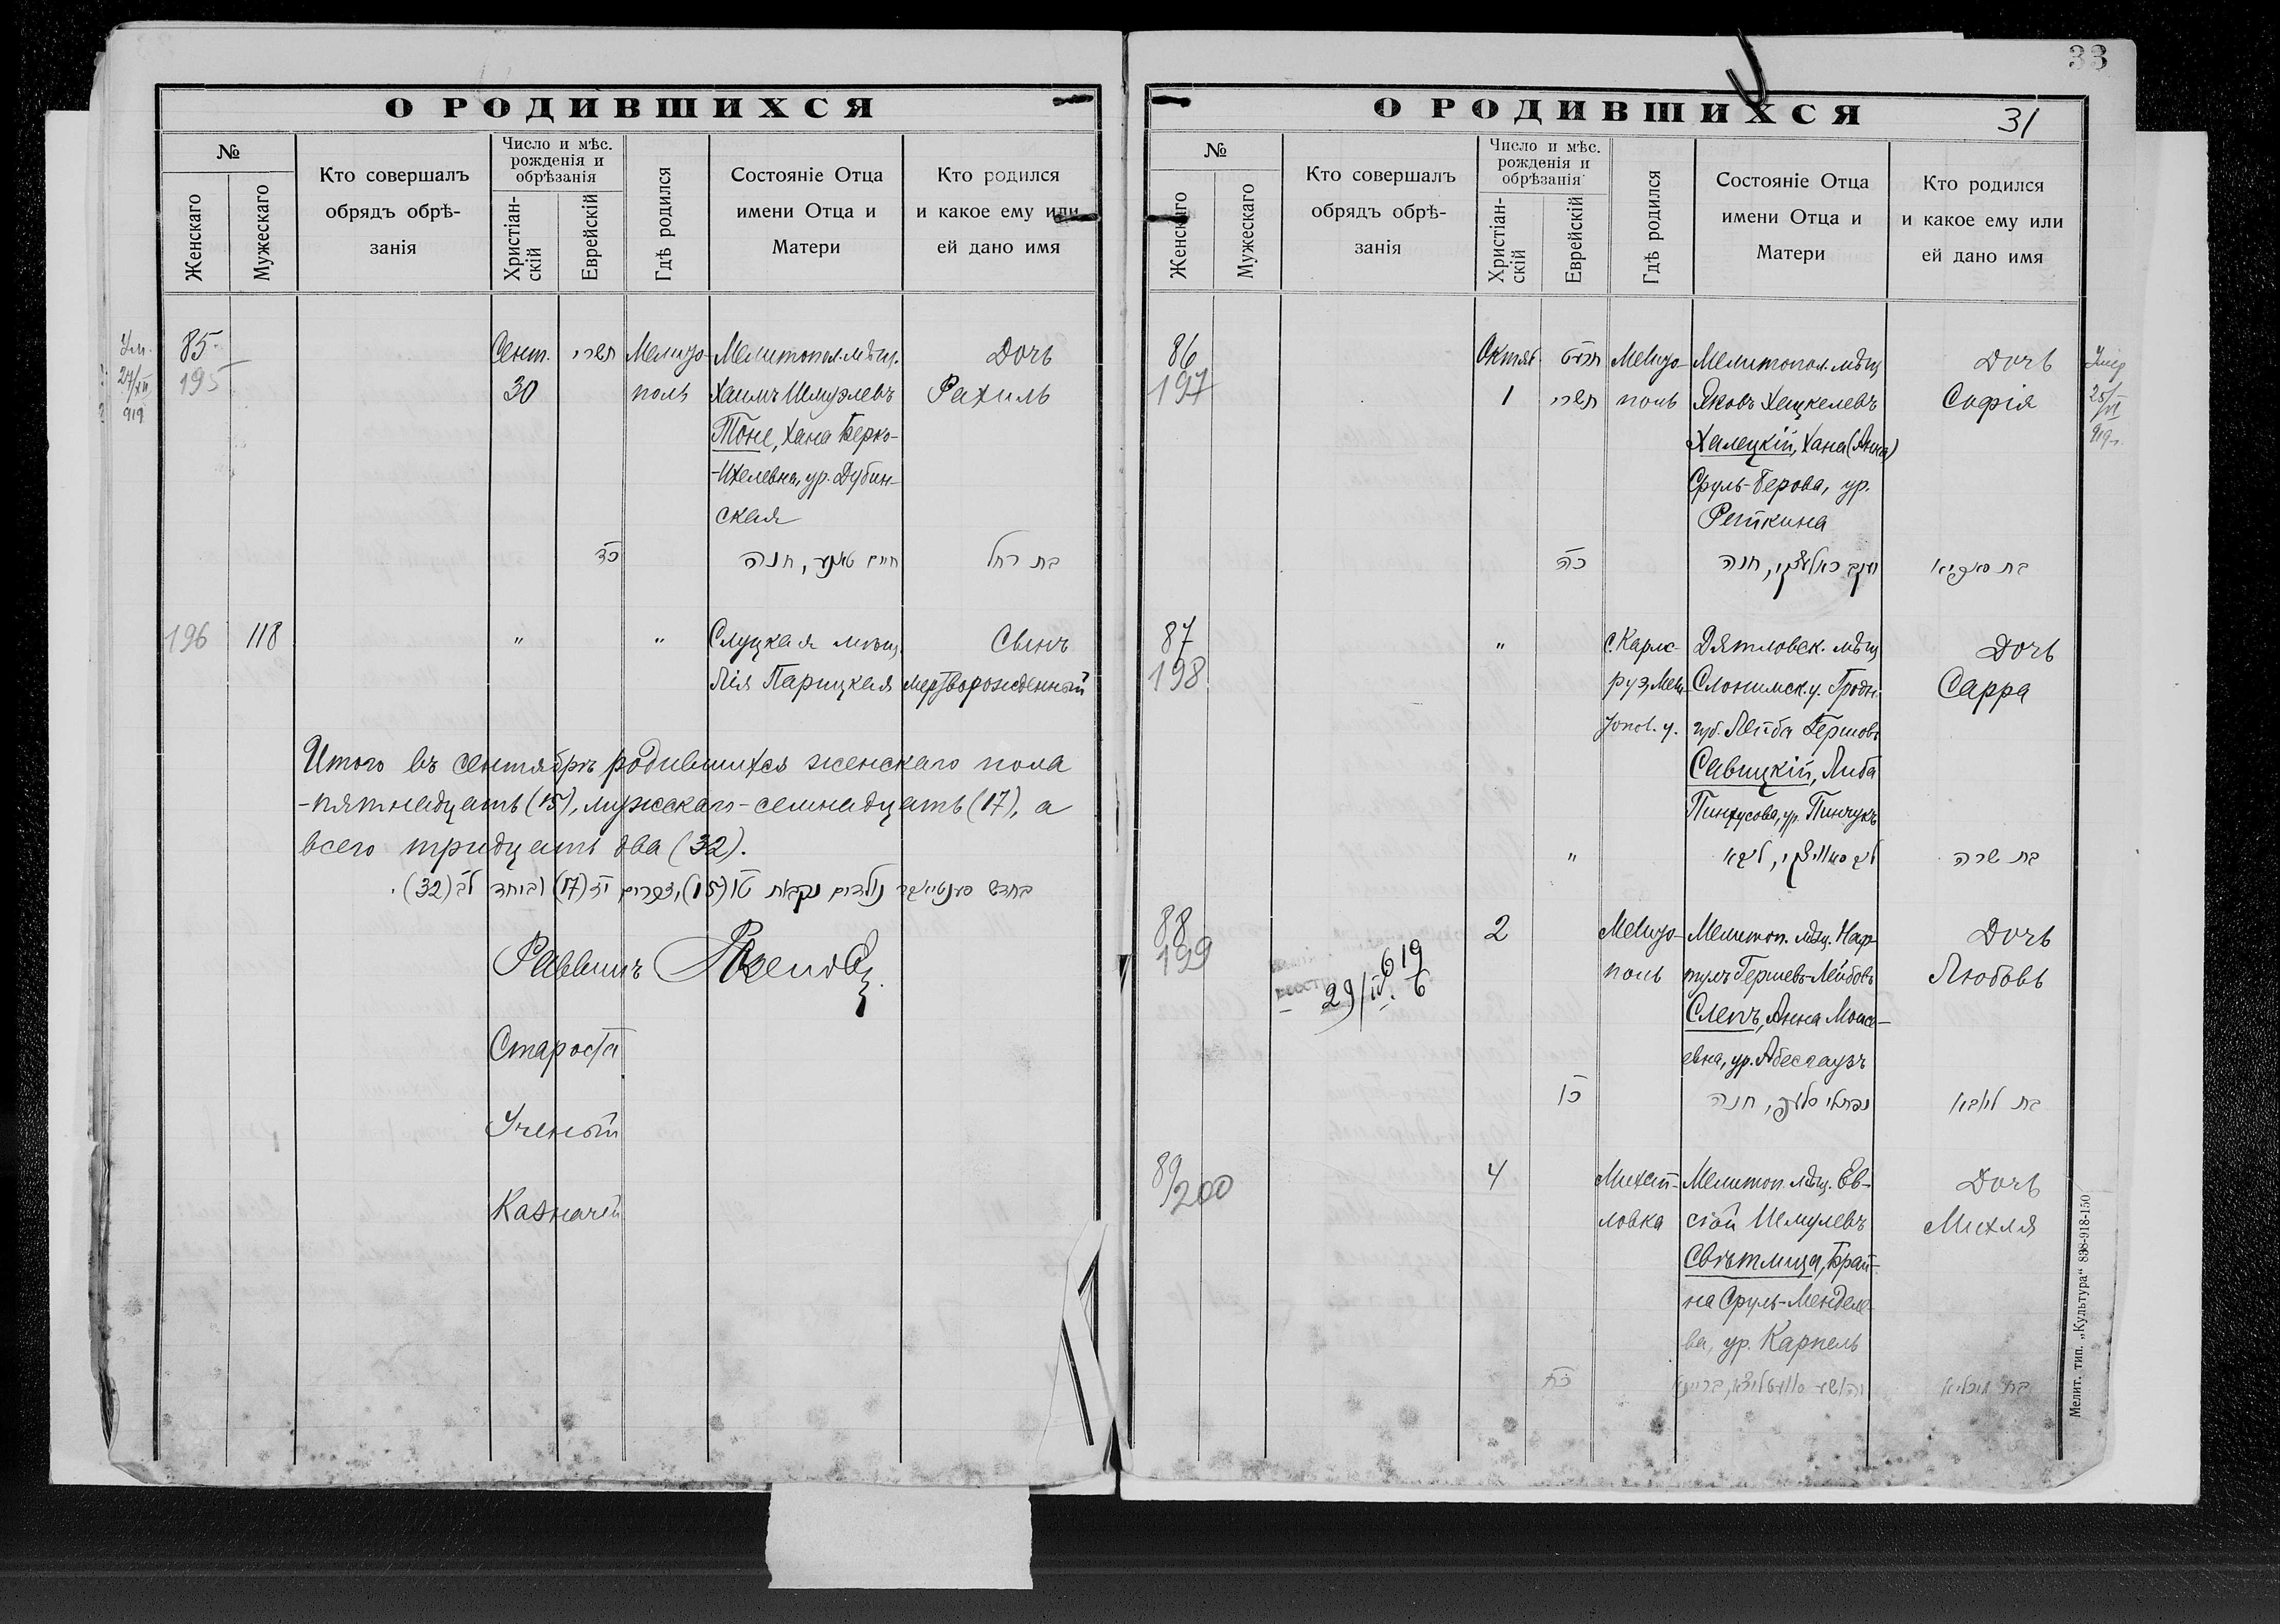 О РОДИВШИХСЯ
№
Женскаго
Мужескаго
Кто совершалъ
обрядъ обрѣ-
занія
Число и мѣс.
рожденія и
обрѣзанія
Христіан-
скій
Еврейскій
Гдѣ родился
Состояніе Отца
имени Отца и
Матери
Кто родился
и какое ему или
ей дано имя
Ум.
27/XII
919
85
195
Сент.
30
תשרי
Мелито-
поль
Мелитопол. мѣщ.
Хаимъ Шмулевъ
Тоне, Хана Берко-
-Ихелевна, ур. Дубин-
ская
Дочь
Рахиль
כד
חיים טאנע, חנה
בת רחל
196
118
"
"
Слуцкая мѣщ.
Лія Парицкая
Сынъ
мертворожденный
Итого въ сентябрѣ родившихся женскаго пола
-пятнадцать (15), мужского-семнадцать (17), а
всего тридцать два (32).
בחדש סענטיאבר נולדים נקבות טו (15), זכרים יז (17) וביחד לב (32).
Раввинъ
Староста
Ученый
Казначей
33
О РОДИВШИХСЯ
31
№
Женскаго
Мужескаго
Кто совершалъ
обрядъ обрѣ-
занія
Число и мѣс.
рожденія и
обрѣзанія
Христіан-
скій
Еврейскій
Гдѣ родился
Состояніе Отца
имени Отца и
Матери
Кто родился
и какое ему или
ей дано имя
86
197
Октяб.
1
תרעט
תשרי
Мелито-
поль
Мелитопол. мѣщ
Яковъ Хацкелевъ
Халецкій, Хана (Анна)
Сруль-Берова, ур.
Реткина
Дочь
Софія
Умер
25/VI
919 г.
כה
יעקב כאלעצקי, חנה
בת סאפיא
87
198
"
с. Карлс-
руэ, Мели-
топол. у.
Дятловск. мѣщ
Слонимск. у. Гродн.
губ. Лейба Гершовъ
Савицкій, Либа
Пинхусова, ур. Пинчукъ
Дочь
Сарра
"
לייב סאוויצקי, ליבא
בת שרה
88
199
29/IV. 6
619
2
Мелито-
поль
Мелитоп. мѣщ. Наф-
тулъ Гершевъ-Лейбовъ
Слепъ, Анна Моисе-
евна, ур. Абесгаузъ
Дочь
Любовь
כו
נפתלי סלעפ, חנה
בת ליובא
89/200
4
Михай-
ловка
Мелитоп. мѣщ. Ев-
сѣй Шмулевъ
Свѣтлица, Брай-
на Сруль-Менделе-
ва, ур. Карпель
Дочь
Михля
כח
יהושע סוועטליצא, בריינא
בת מיכליא
Мелит. тип. „Культура“ 838-918-150